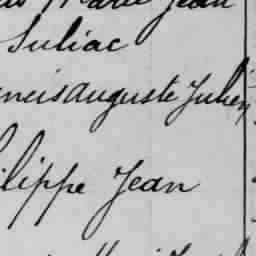 Marie Jean
Suliac
ncisauguste Julien
ilippe Jean